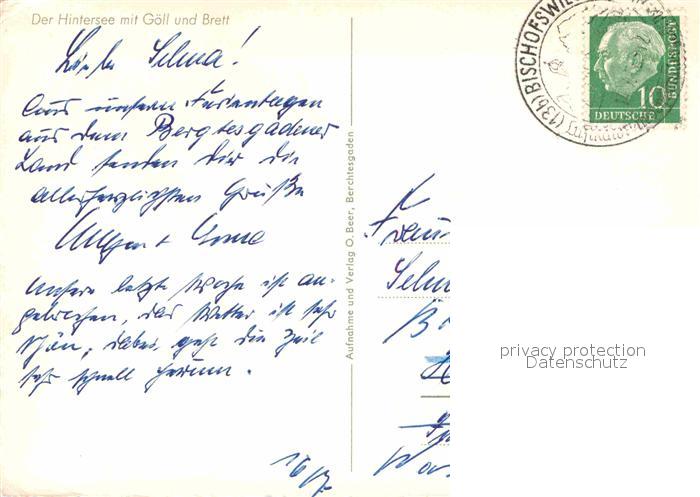 Der Hintersee mit Göll und Brett
Liebe Selma!
Aus unsern Ferientagen
aus dem Berchtesgadener
Land senden dir die
allerherzlichsten Grüße
Unsere letzte Woche ist an-
gebrochen, das Wetter ist sehr
schön, dabei geht die Zeit
sehr schnell herum.
Aufnahme und Verlag O. Beer, Berchtesgaden
(13b) BISCHOFSWIE
10
DEUTSCHE
BUNDESPOST
Frau
Selm
privacy protection
Datenschutz